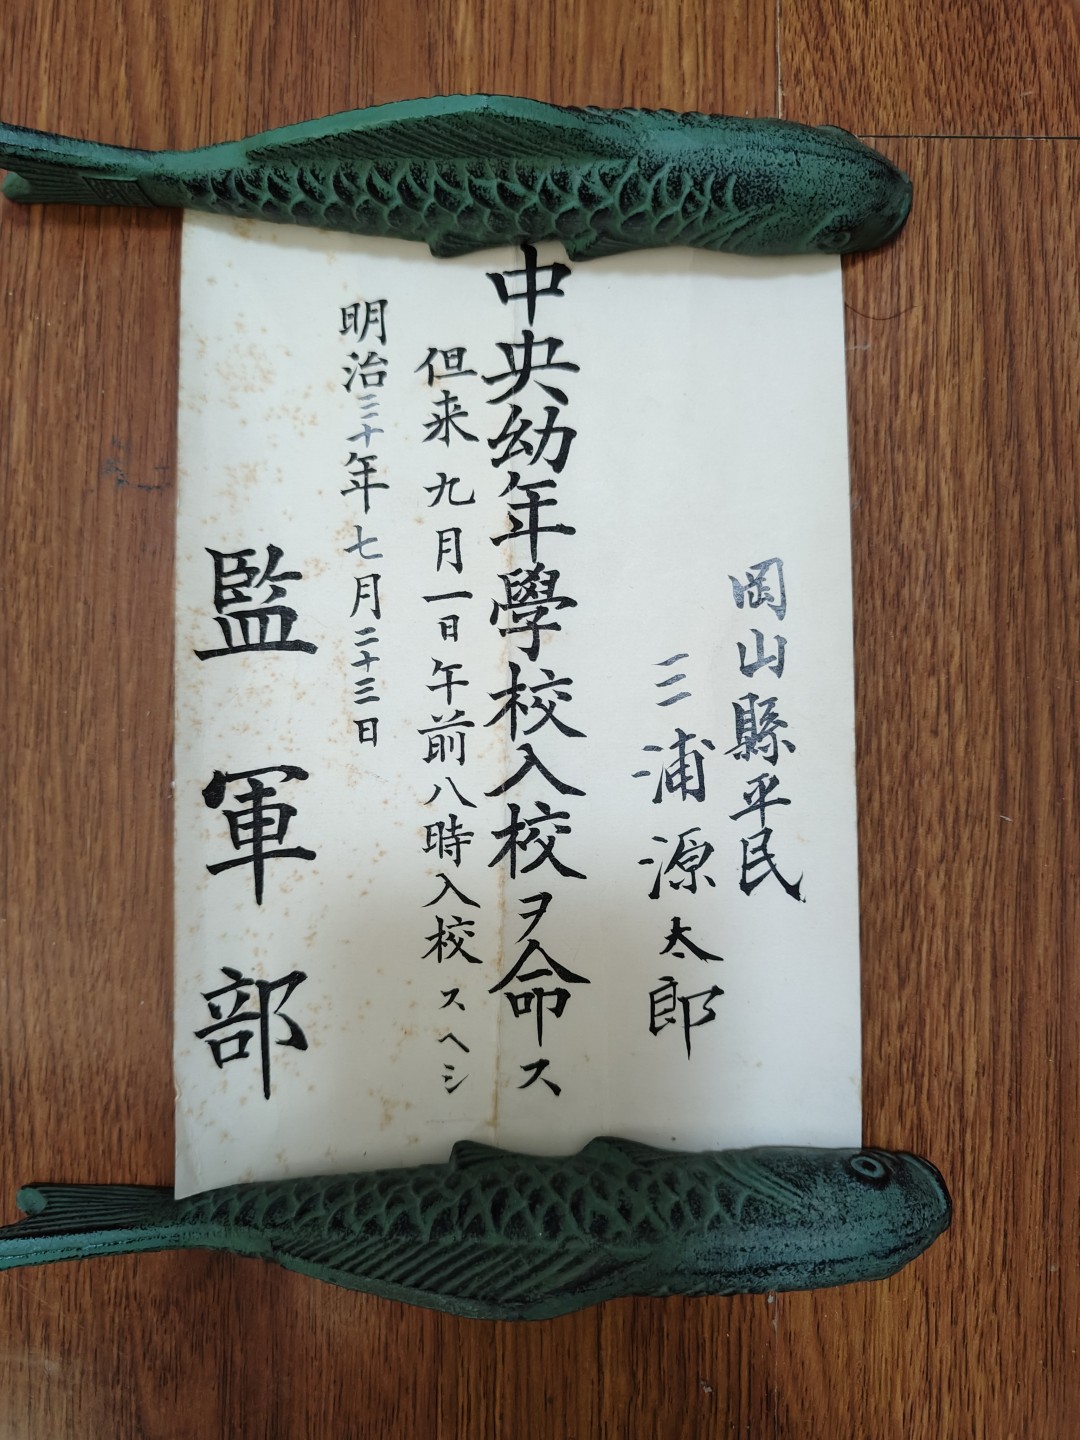 岡山縣平民
三浦源太郎
中央幼年學校入校ヲ命ス
但来九月一日午前八時入校スヘシ
明治三十年七月二十三日
監軍部